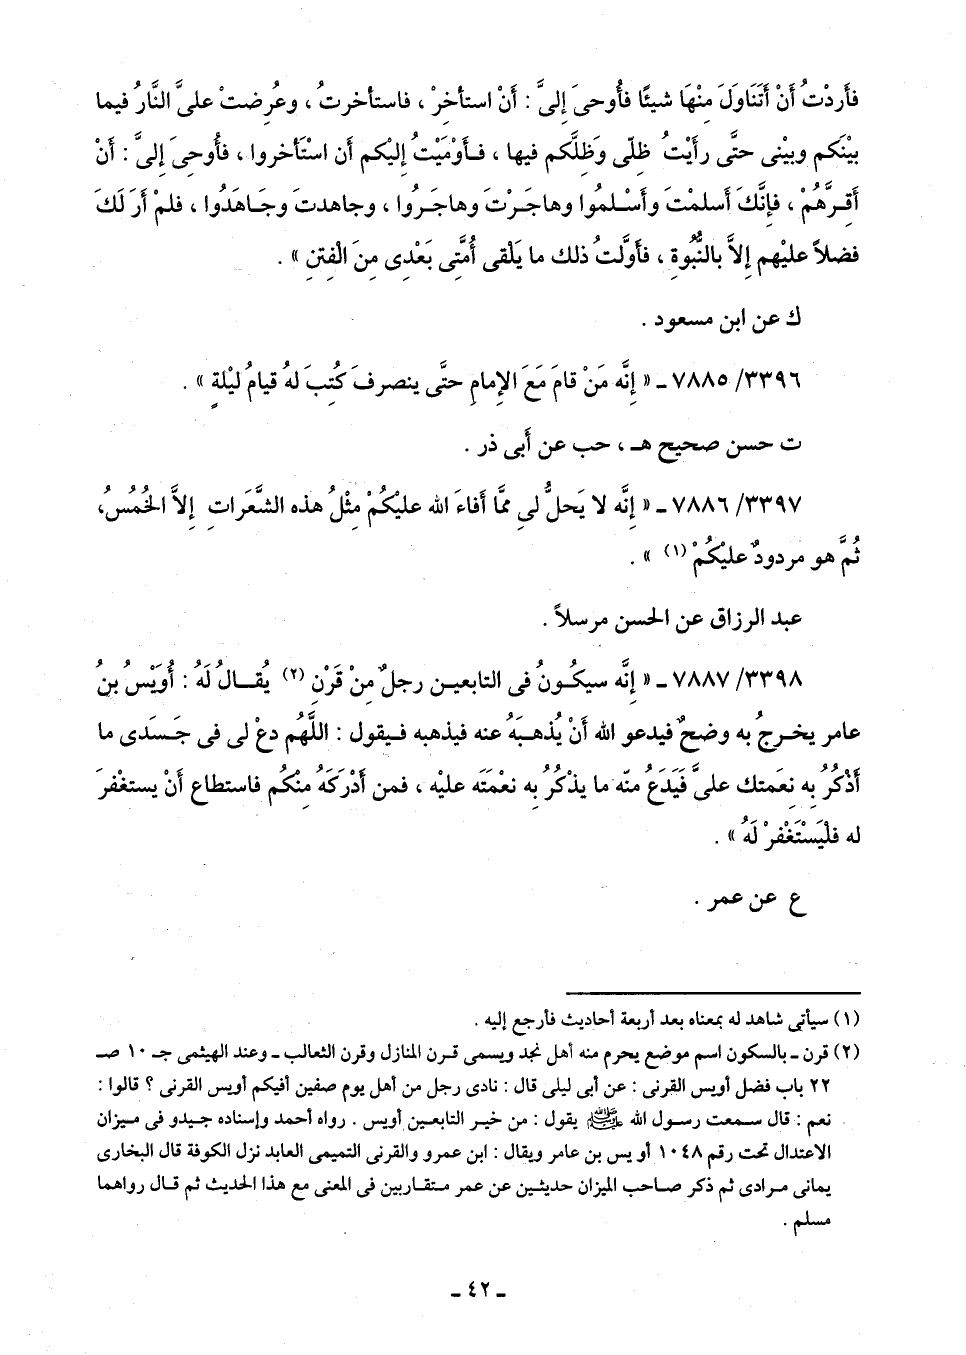 فأردْتُ أنْ أتَنَاوَلَ مِنْهَا شيئًا فأُوحىَ إلىَّ : أنْ استأخِرْ ، فاستأخرتُ ، وعُرِضتْ علىَّ النَّارُ فيما
بيْنَكم وبيْنى حتَّى رأيْتُ ظِلّى وَظِلَّكم فيها ، فـأوْمَيْتُ إليْكم أن استَأخروا ، فأُوحىَ إلىَّ : أنْ
أقِـرَّهُمْ ، فإنَّكَ أسلمْتَ وأسْـلمُوا وهاجَـرْتَ وهاجَـروا ، وجاهدتَ وجَـاهَدُوا ، فلمْ أرَ لَكَ
فضلاً عليْهِم إلاَّ بالنُّبُوةِ ، فأوَّلتُ ذلك ما يَلْقى أُمَّتى بَعْدِى مِنَ الْفِتنِ » .
ك عن ابن مسعود .
٣٣٩٦/ ٧٨٨٥ ـ « إنَّه مَنْ قامَ مَعَ الإمامِ حتَّى ينصرفَ كُتِبَ لهُ قيامُ ليْلةٍ » .
ت حسن صحيح هـ ، حب عن أبى ذر .
٣٣٩٧/ ٧٨٨٦ ـ « إنَّه لا يَحلُّ لى ممَّا أفاءَ الله عليْكُمْ مِثْلُ هذه الشَّعَراتِ إلاَّ الخُمُسُ،
ثُمَّ هو مردودٌ عليْكُمْ (١) » .
عبد الرزاق عن الحسن مرسلاً .
٣٣٩٨/ ٧٨٨٧ ـ « إنَّه سيكُـونُ فى التابعيـن رجلٌ مِنْ قَرْنٍ (٢) يُقـالُ لَهُ : أُوَيْسُ بنُ
عامر يخـرجُ به وضحٌ فيدعو الله أنْ يُذهـبَهُ عنه فيذهبه فـيقول : اللَّهُم دعْ لى فى جَـسَدى ما
أذْكُرُ به نِعَمتك علىَّ فَيَدَعُ منْه ما يذْكُرُ به نعْمَتَه عليْه ، فمن أدْرَكَهُ مِنْكُم فاستطاع أنْ يستغْفرَ
له فلْيَسْتَغْفرْ لَهُ » .
ع عن عمر .
(١) سيأتى شاهد له بمعناه بعد أربعة أحاديث فأرجع إليه .
(٢) قرن ـ بالسكون اسم موضع يحرم منه أهل نجد ويسمى قـرن المنازل وقرن الثعالب ـ وعند الهيثمى جـ ١٠ صـ
٢٢ باب فضل أويس القرنى : عن أبى ليلى قال : نادى رجل من أهل يوم صفين أفيكم أويس القرنى ؟ قالوا :
نعم : قال سـمعت رسـول الله ﷺ يقول : من خير التابعـين أويس . رواه أحمد وإسناده جـيدو فى مـيزان
الاعتدال تحت رقم ١٠٤٨ أو يس بن عامر ويقال : ابن عمرو والقرنى التميمى العابد نزل الكوفة قال البخارى
يمانى مـرادى ثم ذكر صـاحب الميزان حديثـين عن عمر مـتقاربين فى المعنى مع هذا الحديث ثم قـال رواهما
مسلم .
ـ ٤٢ ـ